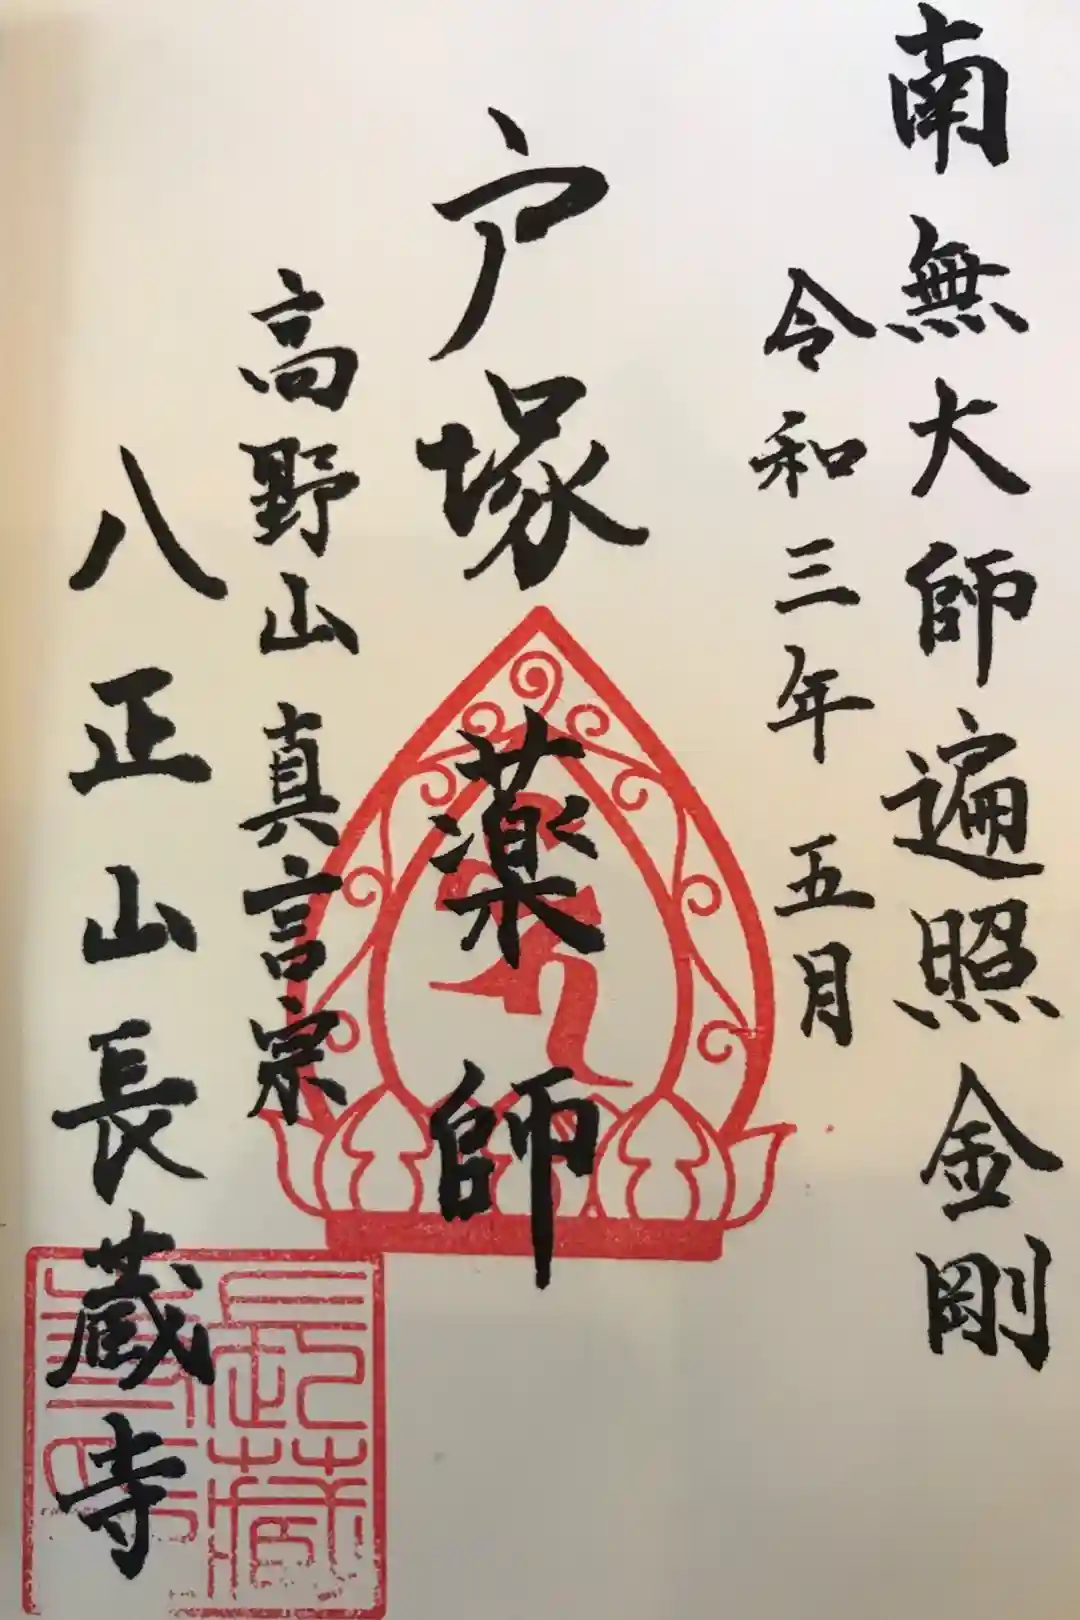 南無大師遍照金剛
令和三年 五月
戸塚薬師
高野山 真言宗
八正山長蔵寺
長蔵